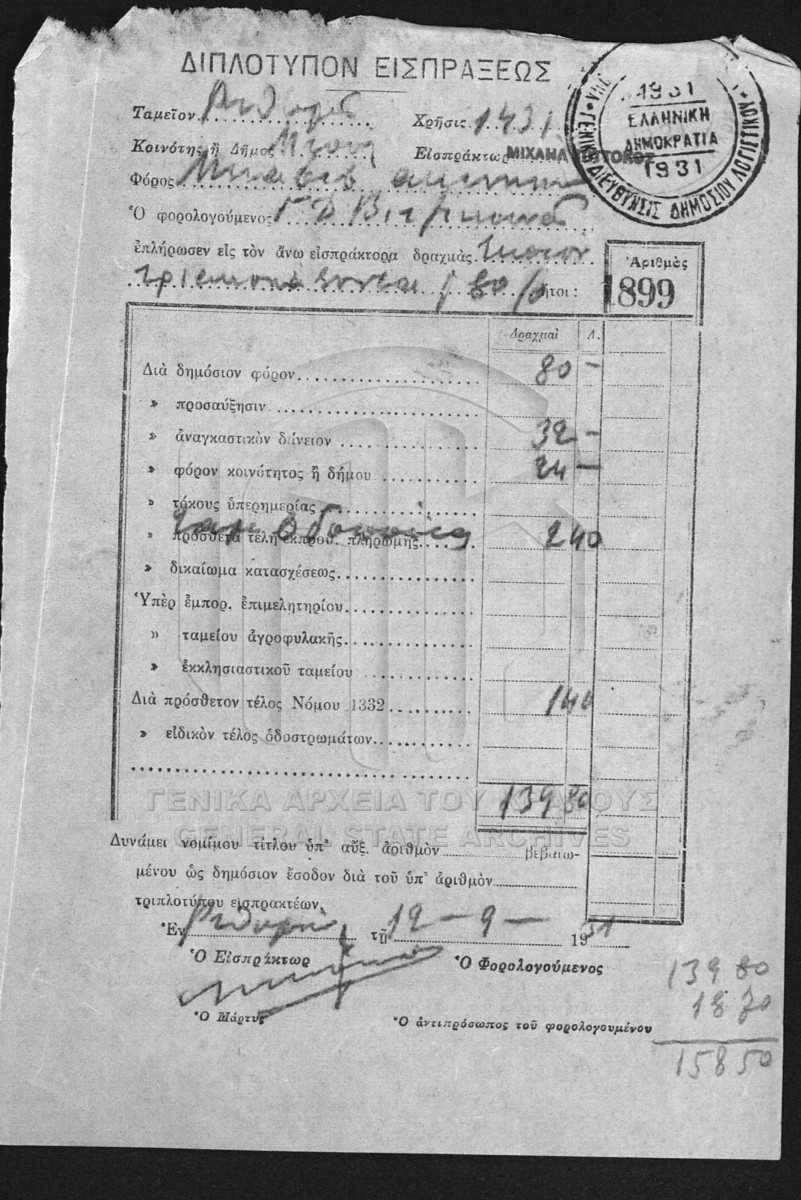 ΔΙΠΛΟΤΥΠΟΝ ΕΙΣΠΡΑΞΕΩΣ
1931
ΕΛΛΗΝΙΚΗ
ΔΗΜΟΚΡΑΤΙΑ
1931
ΓΕΝΙΚΗ ΔΙΕΥΘΥΝΣΙΣ ΔΗΜΟΣΙΟΥ ΛΟΓΙΣΤΙΚΟΥ
Ταμεῖον Χρῆσις 1931
Κοινότης ἢ Δῆμος Εἰσπράκτωρ ΜΙΧΑΗΛ
Φόρος
Ὁ φορολογούμενος
ἐπλήρωσεν εἰς τὸν ἄνω εἰσπράκτορα δραχμὰς
80/0 ἤτοι:
Ἀριθμὸς
1899
Δραχμαὶ Λ.
Διὰ δημόσιον φόρον 80 –
» προσαύξησιν
» ἀναγκαστικὸν δάνειον 32 –
» φόρον κοινότητος ἢ δήμου 24 –
» τόκους ὑπερημερίας
» πρόσθετα τέλη ἐκπροθ. πληρωμῆς 2 40
» δικαίωμα κατασχέσεως
Ὑπὲρ ἐμπορ. ἐπιμελητηρίου
» ταμείου ἀγροφυλακῆς
» ἐκκλησιαστικοῦ ταμείου
Διὰ πρόσθετον τέλος Νόμου 1332 1 40
» εἰδικὸν τέλος ὁδοστρωμάτων
139 80
ΓΕΝΙΚΑ ΑΡΧΕΙΑ ΤΟΥ ΚΡΑΤΟΥΣ
GENERAL STATE ARCHIVES
Δυνάμει νομίμου τίτλου ὑπ' αὔξ. ἀριθμὸν βεβαιω-
μένου ὡς δημόσιον ἔσοδον διὰ τοῦ ὑπ' ἀριθμὸν
τριπλοτύπου εἰσπρακτέων.
Ἐν τῇ 12 – 9 – 1931
Ὁ Εἰσπράκτωρ Ὁ Φορολογούμενος
Ὁ Μάρτυς Ὁ ἀντιπρόσωπος τοῦ φορολογουμένου
139 80
18 70
158 50